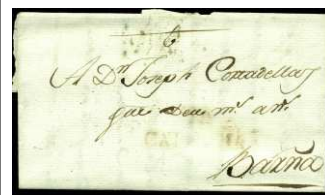 6
A Dn Joseph Corradellas
que Deu ms. as.
CATALUÑA
Barña